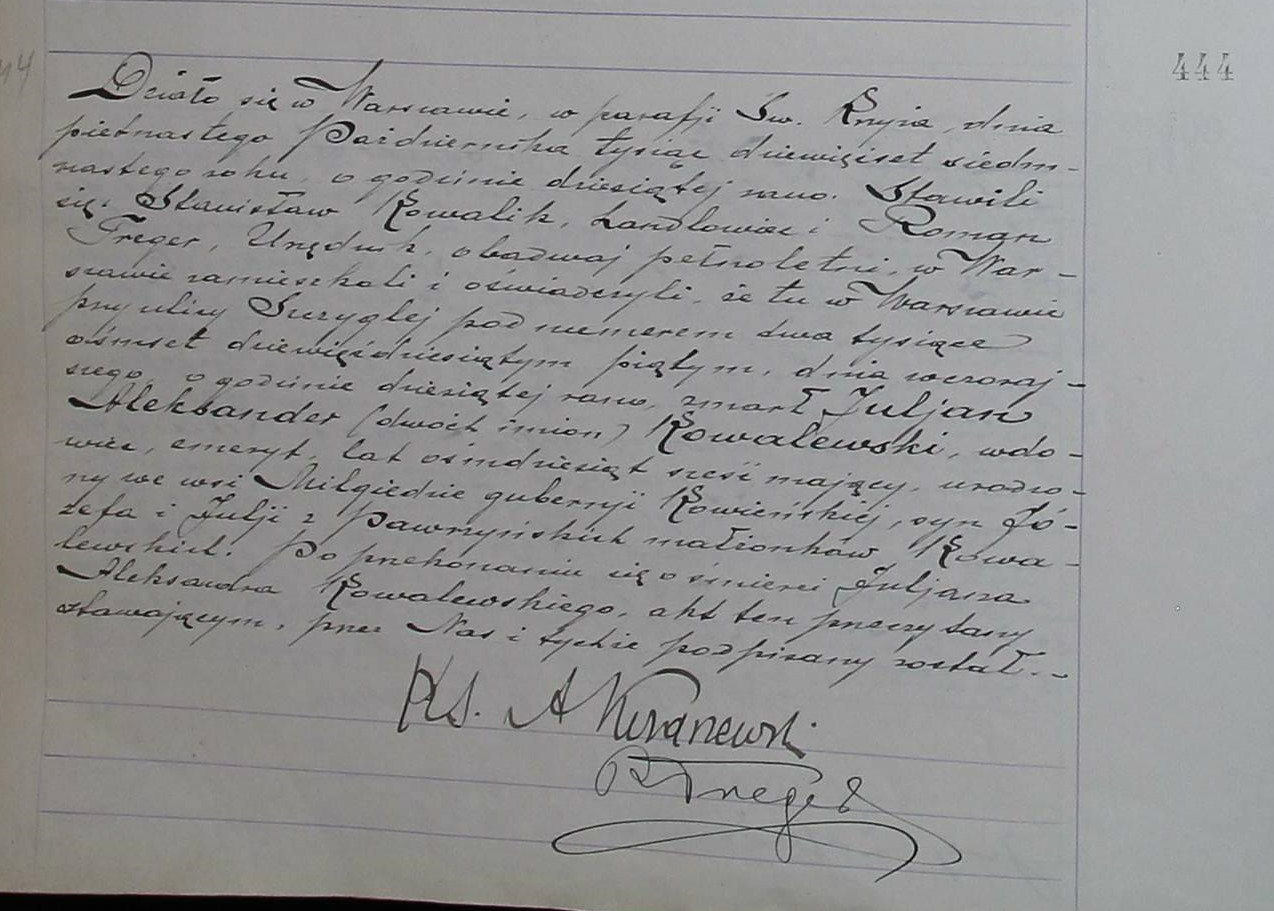 444
Działo się w Warszawie, w parafji Św. Krzyża, dnia
piętnastego Października tysiąc dziewięćset siedm-
nastego roku, o godzinie dziesiątej rano. Stawili
się: Stanisław Kowalik, handlowiec i Roman
Treger, Urzędnik, obadwaj pełnoletni, w War-
szawie zamieszkali i oświadczyli, że tu w Warszawie
przy ulicy Smzyglej pod numerem dwa tysiące
ośmset dziewięćdziesiątym piątym, dnia wczoraj-
szego, o godzinie dziesiątej rano, zmarł Juljan
Aleksander (dwóch imion) Kowalewski, wdo-
wiec, emeryt, lat ośmdziesiąt sześć mający, urodzo-
ny we wsi Milgiedzie gubernji Kowieńskiej, syn Jó-
zefa i Julji z Pawrzyńskich małżonków Kowa-
lewskich. Po przekonaniu się o śmierci Juljana
Aleksandra Kowalewskiego, akt ten przeczytany
stawającym, przez Nas i tychże podpisany został.--
Ks. A
R Treger